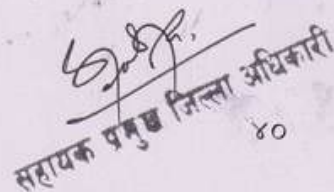 सहायक प्रमुख जिल्ला अधिकारी
४०